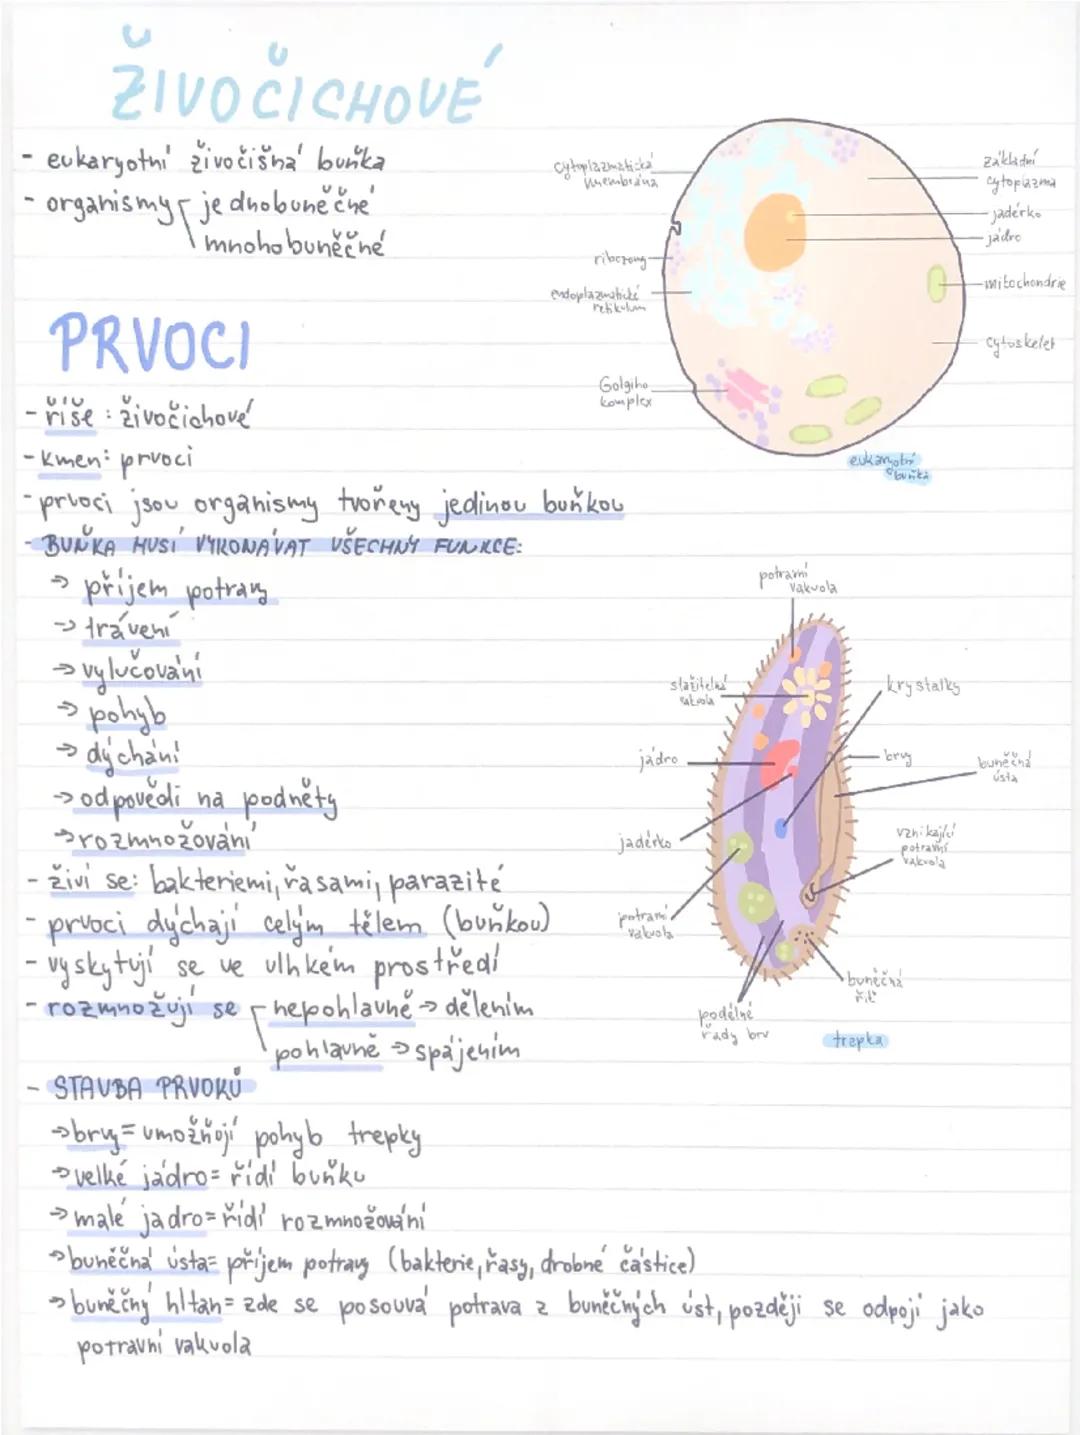 ŽIVOČICHOVÉ
- eukaryotní živočišná buňka
- organismy jednobuněčné
mnohobuněčné
cytoplazmatická
membrána
ribozomy
endoplazmatické
retikulum
Golgiho
komplex
základní
cytoplazma
jadérko
jádro
mitochondrie
cytoskelet
eukaryotní
buňka
PRVOCI
- říše: živočichové
- kmen: prvoci
- prvoci jsou organismy tvořeny jedinou buňkou
- BUŇKA MUSÍ VYKONÁVAT VŠECHNY FUNKCE:
→ příjem potravy
→ trávení
→ vylučování
→ pohyb
→ dýchání
→ odpovědi na podněty
→ rozmnožování
- živí se: bakteriemi, řasami, parazité
- prvoci dýchají celým tělem (buňkou)
- vyskytují se ve vlhkém prostředí
- rozmnožují se nepohlavně → dělením
pohlavně → spájením
potravní
vakuola
stažitelná
vakuola
jádro
jadérko
potravní
vakuola
podélné
řady brv
krystalky
brvy
buněčná
ústa
vznikající
potravní
vakuola
buněčná
řiť
trepka
- STAVBA PRVOKŮ
→ brvy = umožňojí pohyb trepky
→ velké jádro = řídí buňku
→ malé jadro = řídí rozmnožování
→ buněčná ústa = příjem potravy (bakterie, řasy, drobné částice)
→ buněčný hltan = zde se posouvá potrava z buněčných úst, později se odpojí jako
potravní vakuola